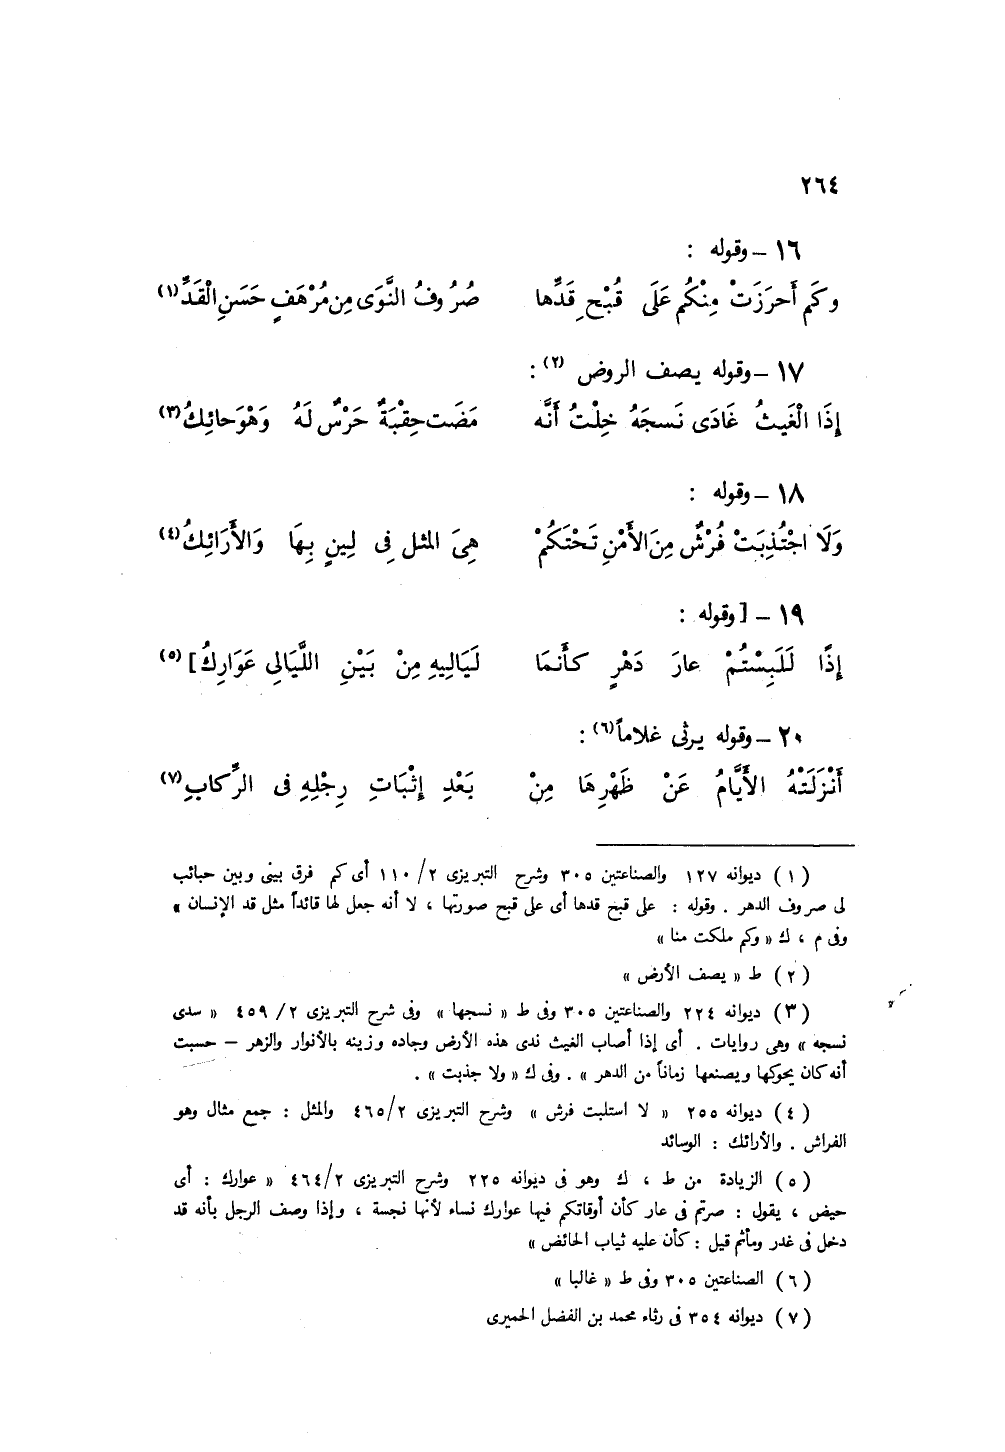 ٢٦٤
١٦ – وقوله :
وكَم أَحرَزَتْ مِنْكُم عَلَى قُبْحِ قَدِّها صُرُوفُ النَّوَى مِن مُرْهَفٍ حَسَنِ الْقَدِّ (١)
١٧ – وقوله يصف الروض (٢) :
إِذَا الْغَيثُ غَادَى نَسجَهُ خِلْتُ أَنَّه مَضَت حِقْبَةٌ حَرْسٌ لَهُ وَهْوَ حائِكُ (٣)
١٨ – وقوله :
وَلَا اجْتُذِبَتْ فُرْشٌ مِنَ الأَمْنِ تَحْتَكُمْ هِيَ المثل فِى لِينٍ بِهَا وَالأَرَائِكُ (٤)
١٩ – [ وقوله :
إِذًا لَلَبِسْتُمْ عارَ دَهْرٍ كأَنمَا لَيَالِيهِ مِنْ بَيْنِ اللَّيَالِى عَوَارِكُ ] (٥)
٢٠ – وقوله يرثى غلاماً (٦) :
أَنْزَلَتْهُ الأَيَّامُ عَنْ ظَهْرِهَا مِنْ بَعْدِ إِثْبَاتِ رِجْلِهِ فى الرِّكابِ (٧)
(١) ديوانه ١٢٧ والصناعتين ٣٠٥ وشرح التبريزى ٢/ ١١٠ أى كم فرق بينى وبين حبائب
لى صروف الدهر . وقوله : على قبح قدها أى على قبح صورتها ، لا أنه جعل لها قائداً مثل قد الإنسان »
وفى م ، ك « وكم ملكت منا »
(٢) ط « يصف الأرض »
(٣) ديوانه ٢٢٤ والصناعتين ٣٠٥ وفى ط « نسجها » وفى شرح التبريزى ٢/ ٤٥٩ « سدى
نسجه » وهى روايات . أى إذا أصاب الغيث ندى هذه الأرض وجاده وزينه بالأنوار والزهر – حسبت
أنه كان يحوكها ويصنعها زماناً من الدهر » . وفى ك « ولا جذبت » .
(٤) ديوانه ٢٥٥ « لا استلبت فرش » وشرح التبريزى ٤٦٥/٢ والمثل : جمع مثال وهو
الفراش . والأرائك : الوسائد
(٥) الزيادة من ط ، ك وهو فى ديوانه ٢٢٥ وشرح التبريزى ٤٦٤/٢ « عوارك : أى
حيض ، يقول : صرتم فى عار كأن أوقاتكم فيها عوارك نساء لأنها نجسة ، وإذا وصف الرجل بأنه قد
دخل فى غدر ومأثم قيل : كأن عليه ثياب الحائض »
(٦) الصناعتين ٣٠٥ وفى ط « غالبا »
(٧) ديوانه ٣٥٤ فى رثاء محمد بن الفضل الحميرى